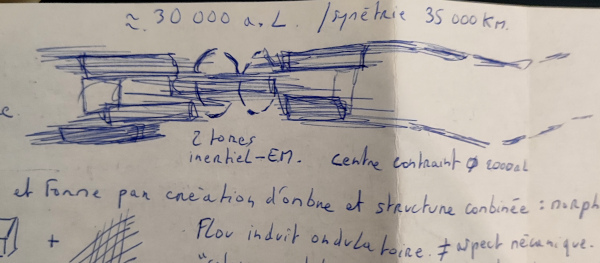 ≈ 30 000 a.L. / symétrie 35 000 Km.
2 tores
inertiel-EM. Centre contraint ϕ 2000al
et Forme par création d'ombre et structure combinée : morph
+ Flou induit ondulatoire. ≠ aspect mécanique.